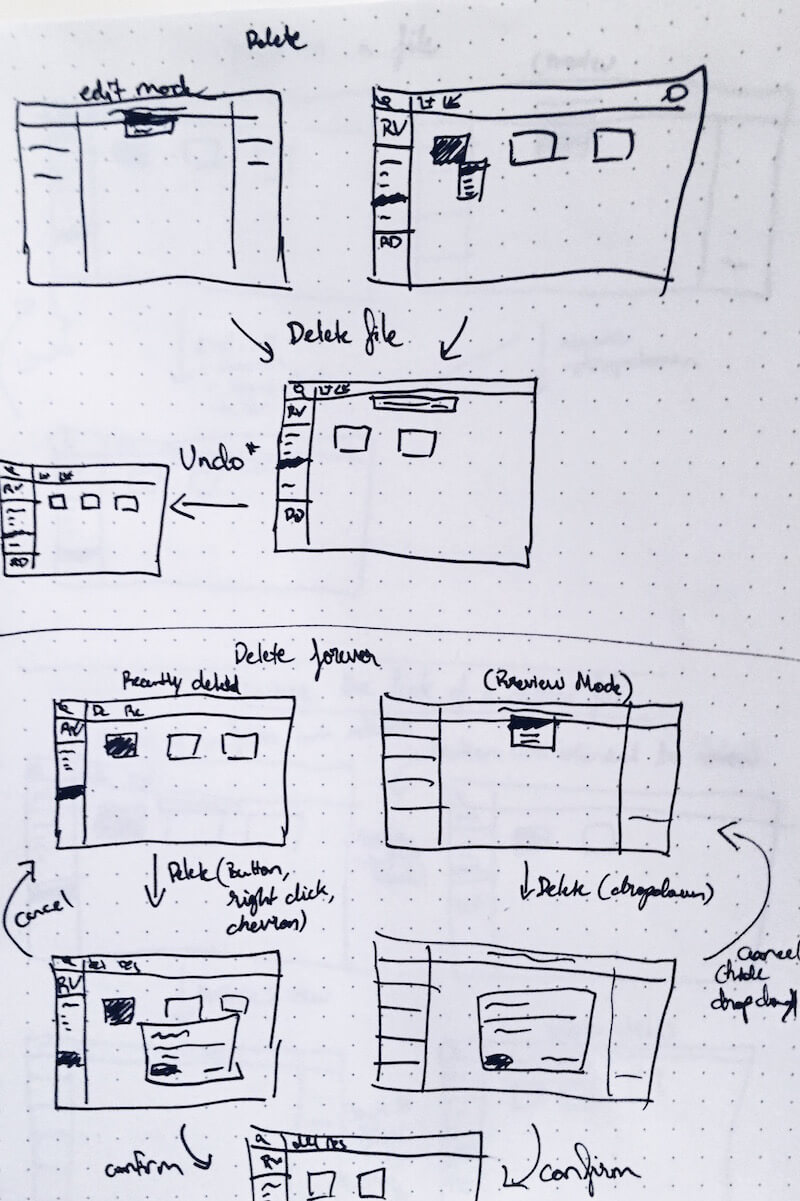 Delete
edit mode
RV
RD
Delete file
RV
RD
Undo*
Rv
RD
Delete forever
Recently deleted
(Preview Mode)
De Re
RV
Delete (Button,
right click,
chevron)
Delete (dropdown)
cancel
del res
RV
cancel
(hide
dropdown)
del res
RV
confirm
confirm